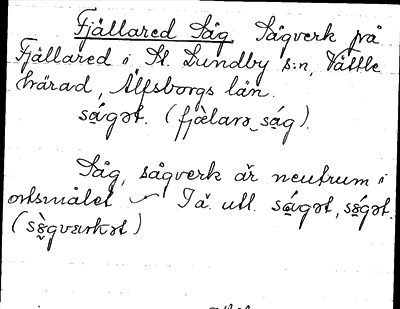 Fjällared Såg Sågverk på
Fjällared i St. Lundby s:n, Vättle
härad, Älfsborgs län.
ságət. (fjæ̀larə ság).
Såg, sågverk är neutrum i
ortsmålet – I ä. utt. ságət, sǫ́gət.
(sǫ̀gværkət)